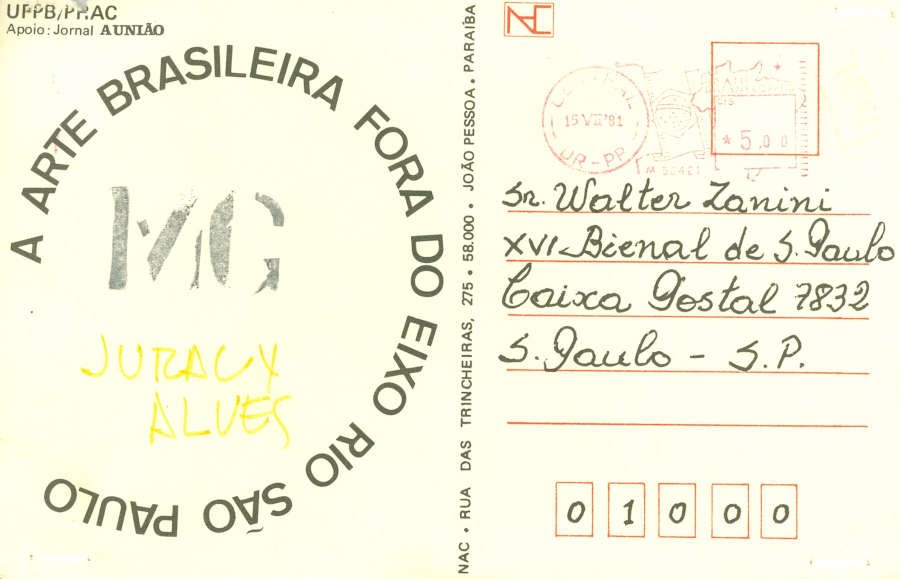 UFPB/PRAC
Apoio: Jornal A UNIÃO
A ARTE BRASILEIRA FORA DO EIXO RIO SÃO PAULO
MG
JURACY
ALVES
NAC • RUA DAS TRINCHEIRAS, 275 • 58.000 • JOÃO PESSOA • PARAÍBA
NAC
15 VII '81
UR-PP
*5,00
Sr. Walter Zanini
XVI-Bienal de S. Paulo
Caixa Postal 7832
S. Paulo - S.P.
0 1 0 0 0